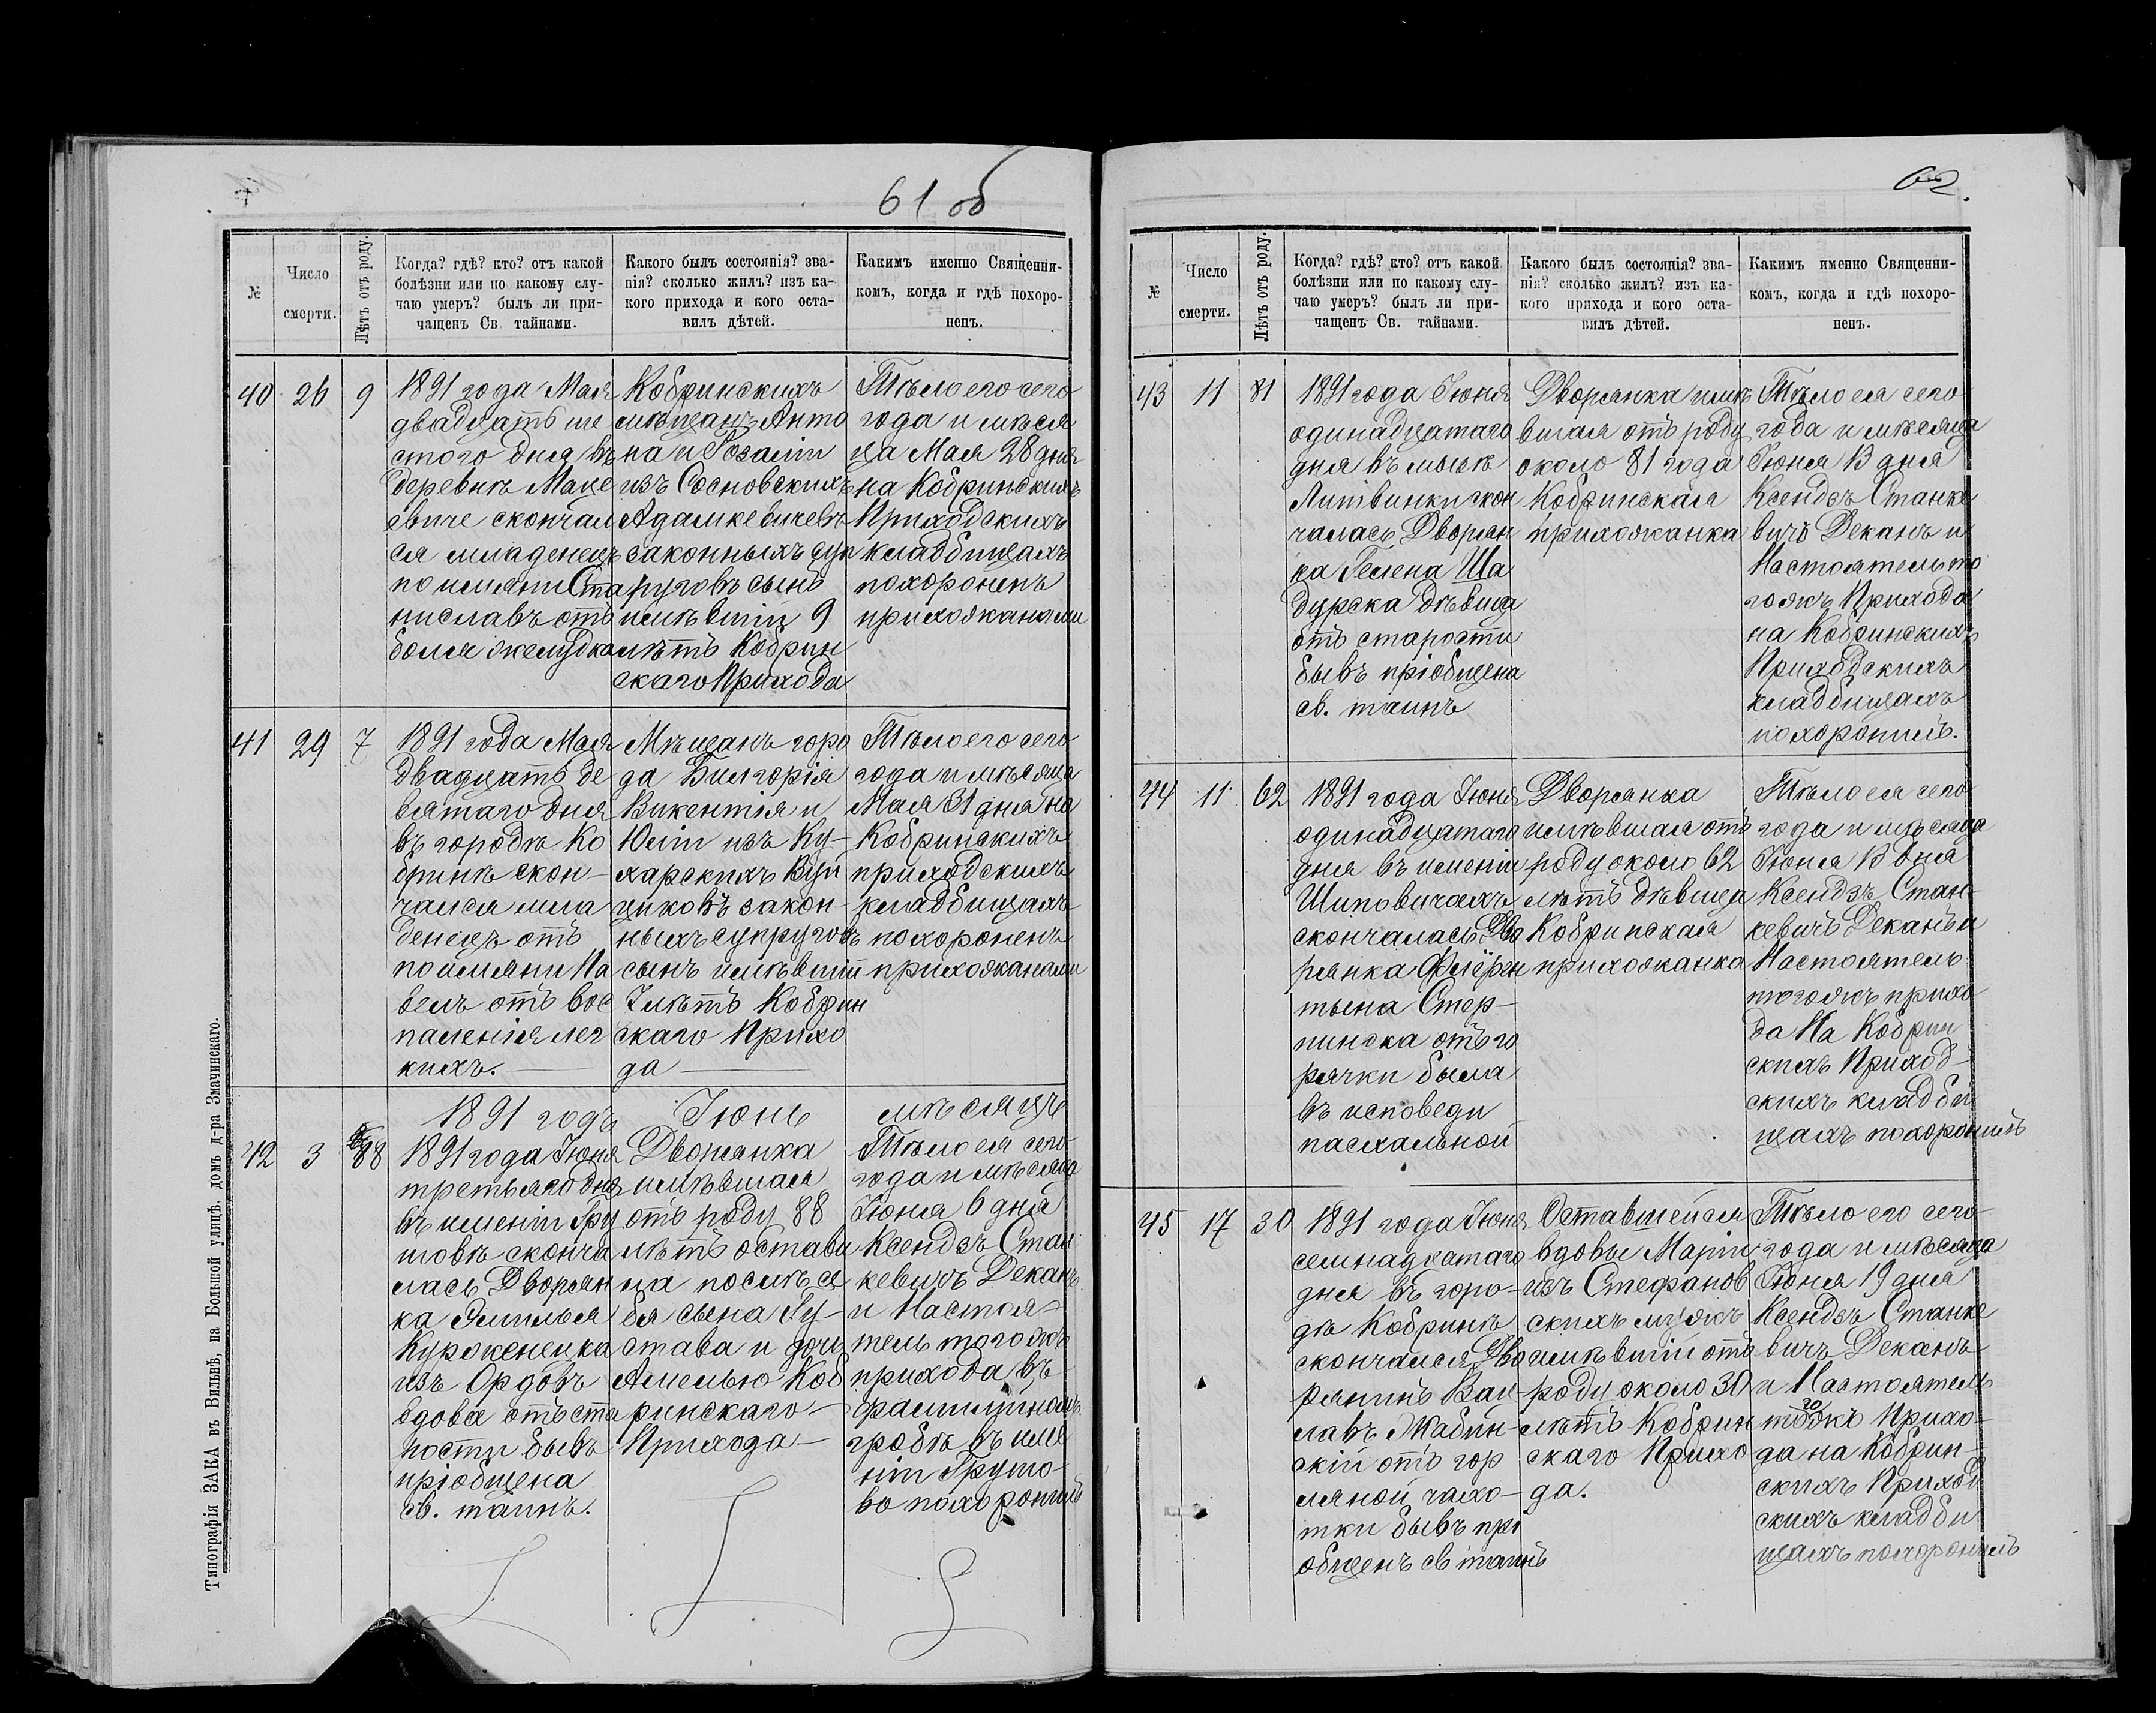 61 об
№
Число
смерти.
Лѣтъ отъ роду.
Когда? гдѣ? кто? отъ какой
болѣзни или по какому слу-
чаю умеръ? былъ ли при-
чащенъ Св. тайнами.
Какого былъ состоянія? зва-
нія? сколько жилъ? изъ ка-
кого прихода и кого оста-
вилъ дѣтей.
Какимъ именно Священни-
комъ, когда и гдѣ похоро-
ненъ.
40
26
9
1891 года Мая
двадцать ше
стого дня въ
деревнѣ Маце
евиче скончал
ся младенецъ
по имяни Ста
ниславъ отъ
боля желудка
Кобринскихъ
мѣщанъ Анто
на и Розаліи
изъ Сосновскихъ
Адамкевичевъ
законныхъ суп
руговъ сынъ
имѣвшій 9
лѣтъ Кобрин
скаго Прихода
Тѣло его сего
года и мѣся
ца Мая 28 дня
на Кобринскихъ
Приходскихъ
кладбищахъ
похороненъ
прихожанами
41
29
7
1891 года Мая
двадцать де
вятаго дня
въ городѣ Ко
бринѣ скон-
чался мла
денецъ отъ
по имяни Па
велъ отъ вос
паленія лег
кихъ.
Мѣщанъ горо
да Билгорія
Викентія и
Юліи изъ Ку-
харскихъ Вуй
циковъ закон-
ныхъ супруговъ
сынъ имѣвшій
7 лѣтъ Кобрин
скаго Прихо
да
Тѣло его сего
года и мѣсяца
Мая 31 дня на
Кобринскихъ
приходскихъ
кладбищахъ
похороненъ
прихожанами
1891 годъ Іюнь мѣсяцъ
42
3
88
1891 года Іюня
третьяго дня
въ имѣніи Гру
шовѣ сконча
лась Дворян
ка Эмилья
Курженецка
изъ Ордовъ
вдова отъ ста
рости бывъ
пріобщена
св. таинъ.
Дворянка
имѣвшая
отъ роду 88
лѣтъ остави
ла послѣ се
бя сына Гу-
става и дочь
Амелью Коб
ринскаго
Прихода
Тѣло ея сего
года и мѣсяца
Іюня 6 дня
Ксендзъ Стан
кевичъ Деканъ
и Настоя-
тель тогожъ
прихода въ
фамилійномъ
гробѣ въ имѣ
ніи Грушо-
во похоронилъ
Типографія ЗАКА въ Вильнѣ, на Большой улицѣ, домъ д-ра Змачинскаго.
62
№
Число
смерти.
Лѣтъ отъ роду.
Когда? гдѣ? кто? отъ какой
болѣзни или по какому слу-
чаю умеръ? былъ ли при-
чащенъ Св. тайнами.
Какого былъ состоянія? зва-
нія? сколько жилъ? изъ ка-
кого прихода и кого оста-
вилъ дѣтей.
Какимъ именно Священни-
комъ, когда и гдѣ похоро-
ненъ.
43
11
81
1891 года Іюня
одинадцатаго
дня въ мызѣ
Литвинки скон
чалась Дворян
ка Гелена Ша
дурска дѣвица
отъ старости
бывъ пріобщена
св. таинъ
Дворянка имѣ
вшая отъ роду
около 81 года
Кобринская
прихожанка
Тѣло ея сего
года и мѣсяца
Іюня 13 дня
Ксендзъ Станке
вичъ Деканъ и
Настоятель то
гожъ Прихода
на Кобринскихъ
Приходскихъ
кладбищахъ
похоронилъ.
44
11
62
1891 года Іюня
одинадцатаго
дня въ имѣніи
Шиповичахъ
скончалась Дво
рянка Флёрен
тына Стер-
пинска отъ го
рячки была
въ исповеди
пасхальной
Дворянка
имѣвшая отъ
роду около 62
лѣтъ дѣвица
Кобринская
прихожанка
Тѣло ея сего
года и мѣсяца
Іюня 13 дня
Ксендзъ Стан-
кевичъ Деканъ и
Настоятель
тогожъ прихо
да На Кобрин
скихъ Приход-
скихъ кладби
щахъ похоронилъ
45
17
30
1891 года Іюня
семнадцатаго
дня въ горо-
дѣ Кобринѣ
скончался Дво
рянинъ Вац-
лавъ Жабин-
скій отъ гор
ляной чахо-
тки бывъ прі
общенъ св таинъ
Оставшейся
вдовы Маріи
изъ Стефанов
скихъ мужъ
имѣвшій отъ
роду около 30
лѣтъ Кобрин
скаго Прихо
да.
Тѣло его сего
года и мѣсяца
Іюня 19 дня
Ксендзъ Станке
вичъ Деканъ
и Настоятель
тогожъ Прихо-
да на Кобрин-
скихъ Приход
скихъ кладби
щахъ похоронилъ